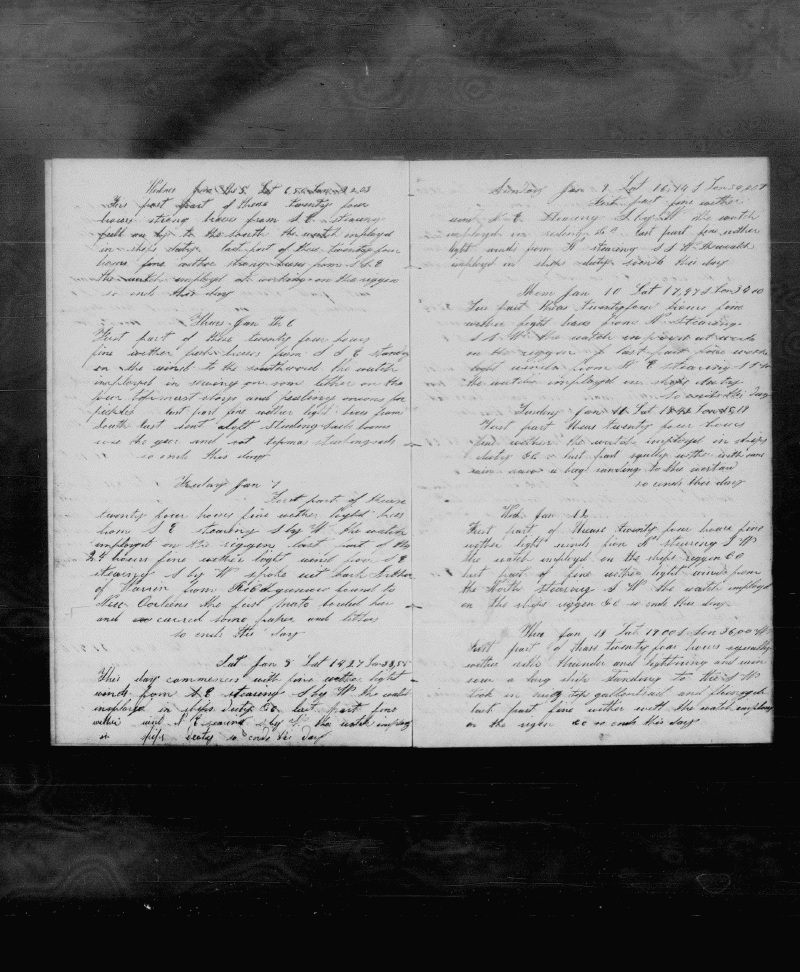 Wednes Jan the 5 Lat
first part of these twenty four
hours strong breeses from S E stearing
full on by to the south the watch imployed
in ships duty last part of these twenty four
hours fine wether strong breeses from S E
the watch employed at working on the riggen
so ends this day
Thurs Jan th 6
First part of these twenty four hours
fine wether fresh breeses from S S E standing
on the wind to the southward the watch
imployed in on som lether on the
four topmast stays and onions for
pickels last part fine wether light bres from
South last sent aloft Studing sails booms
and the gear and set topmas studingsails
so ends this day
Friday Jan 7
First part of theese
twenty four hours fine wether light bres
from S E stearing S by W the watch
imployed on the riggen last part of the
24 hours fine wether light wind from S E
stearing S by W spoke with bark
of from bound to
New the first mate borded her
and carred some paper and letters
so ends this day
Sat Jan 8 Lat 14,27
This day commences with fine wether light
winds from S E stearing S by W the watch
imployed in ships duty &c last part fine
wether wind S E stearing S by W the watch imploy
in ships duty so ends this day
Sunday Jan 9 Lat 16,14 S Lon
first part fine wether
wind N E stearing S by W the watch
imployed on &c last part fine wether
light winds from N stearing S S W the watch
imployd in ships duty so ends this day
Mon Jan 10 Lat 17,47 S Lon 34,00
First part theas twentyfour hours fine
wether light bres from N Stearing
S S W the watch imployed at work
on the riggen last part fine wether
light winds from N E stearing S S W
the watch imployed on ships duty
So ends this Day
Tusday Jan 11 Lat 18,43
First part theas twenty four hours
fine wether the watch imployd in ships
duty &c last part squaly wether with some
rain saw a brig standing to the
so ends this day
Wed Jan 12
First part of theease twenty four hours fine
wether light winds from N stearing S W
The watch imployed on the ships riggen &c
last part of fine wether light winds from
the North stearing S W the watch imployed
on the ships riggen &c so ends this day
Thu Jan 13 Lat 19,00 S Lon 36,00 W
First part of theas twenty four hours squally
wether with thunder and lightning and rain
seen a brig standing to the S W
took in topgallantsail and
last part fine wether with the watch imployed
on the rigen &c so ends this day